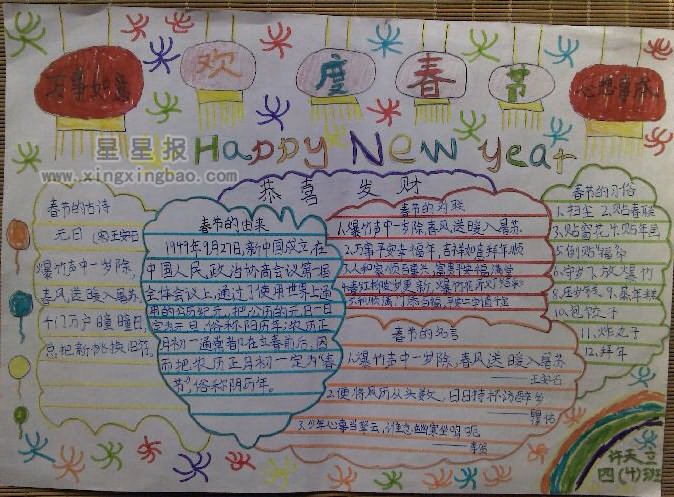 万事如意
欢度春节
心想事成
星星报
www.xingxingbao.com
Happy New year
恭喜发财
春节的古诗
元日 王安石
爆竹声中一岁除,
春风送暖入屠苏
千门万户曈曈日,
总把新桃换旧符。
春节的由来
1949年9月27日,新中国成立,在
中国人民政治协商会议第一届
全体会议上,通过了使用世界上通
用的公历纪元,把公历的元日一日
定为元旦,俗称阳历年;农历正
月初一通常都在立春前后,因
而把农历正月初一定为"春
节",俗称阴历年。
春节的对联
1.爆竹声中一岁除,春风送暖入屠苏
2.万事平安幸福年,吉祥如意拜年顺
春节的名言
1.爆竹声中一岁除,春风送暖入屠苏
——王安石
2.便将风历从头数,日日持杯访醉乡
3.少年心事当拏云,谁念幽寒坐呜呃
——李贺
春节的习俗
1.扫尘 2.贴春联
3.贴窗花 4.贴年画
5.倒贴福字
6.守岁 7.放爆竹
8.压岁钱 9.蒸年糕
10.包饺子
11.炸丸子
12.拜年
许天
四(4)班